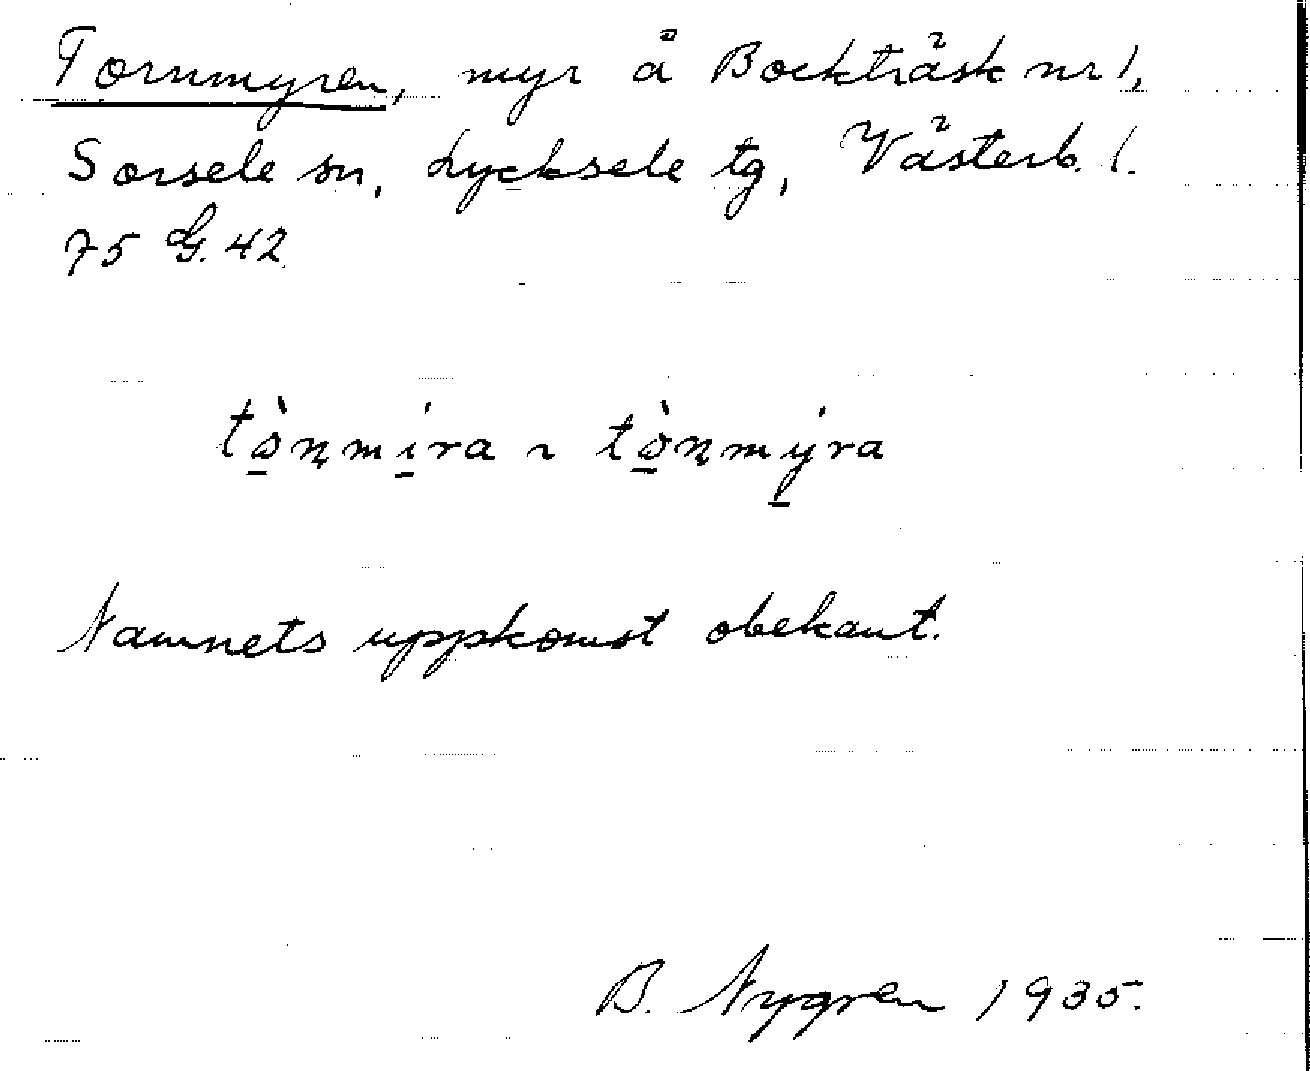 Tornmyren, myr å Bockträsk nr 1,
Sorsele sn, Lycksele tg, Västerb. l.
75 G. 42
tò̱ṇmí̱ra ~ tò̱ṇmý̱ra
Namnets uppkomst obekant.
B. Nygren 1935.